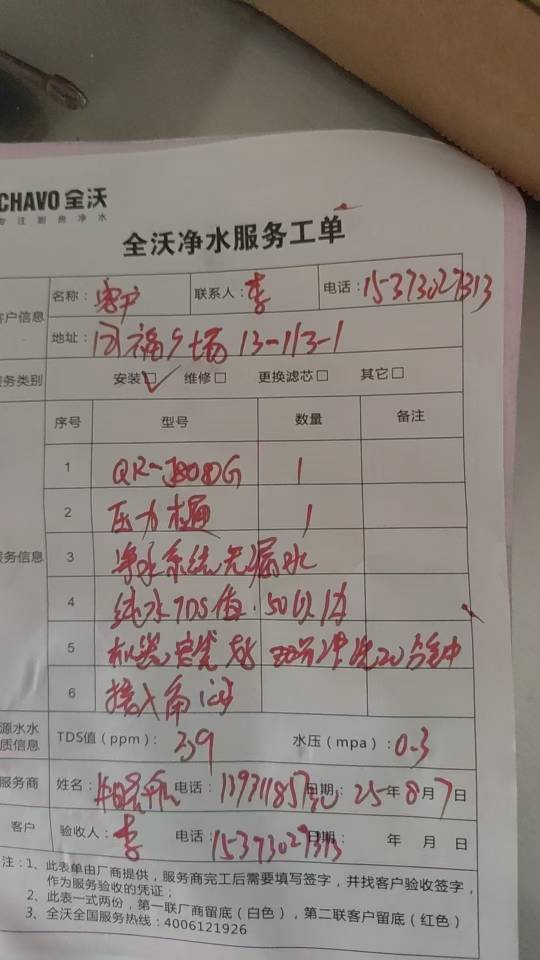 CHAVO 全沃
专注厨房净水
全沃净水服务工单
客户信息
名称：客户 联系人：李 电话：15373027313
地址：福广场 13-1 13-1
服务类别 安装☑ 维修□ 更换滤芯□ 其它□
服务信息
序号 型号 数量 备注
1 QR-J808DG 1
2 压力桶 1
3 净水系统无漏水
4 纯水TDS值 50以内
5 机器 冲洗20分钟
6 接入
源水水质信息 TDS值（ppm）：239 水压（mpa）：0.3
服务商 姓名： 电话： 日期：25年8月7日
客户 验收人：李 电话：15373027313 日期： 年 月 日
注：1、此表单由厂商提供，服务商完工后需要填写签字，并找客户验收签字，
作为服务验收的凭证；
2、此表一式两份，第一联厂商留底（白色），第二联客户留底（红色）
3、全沃全国服务热线：4006121926